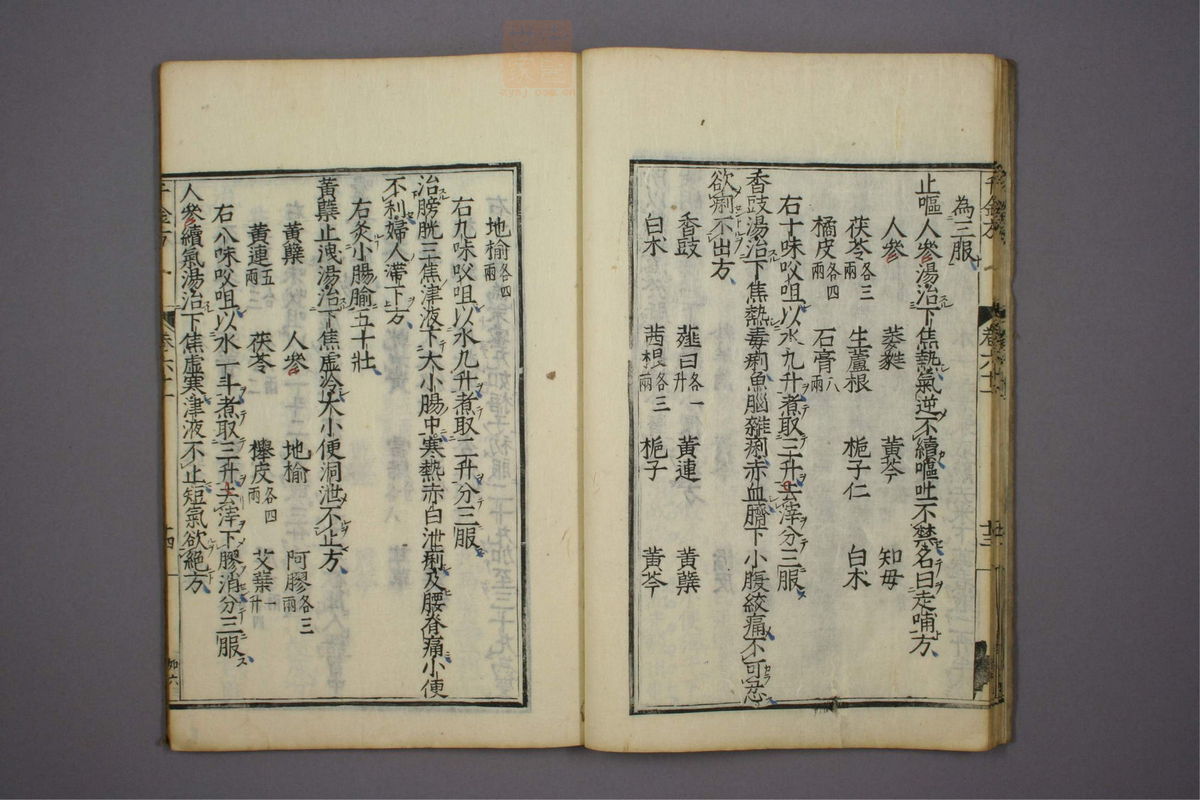 為三服
止嘔人參湯治下焦熱氣逆不續嘔吐不禁名曰走哺方
人參 葳蕤 黃芩 知母
茯苓各三兩 生蘆根 梔子仁 白朮
橘皮各四兩 石膏八兩
右十味㕮咀以水九升煮取三升去滓分三服
香豉湯治下焦熱毒痢魚腦雜痢赤血臍下小腹絞痛不可忍
欲痢不出方
香豉 薤白各一升 黃連 黃蘗
白朮 茜根各三兩 梔子 黃芩
地榆各四兩
右九味㕮咀以水九升煮取三升分三服
治膀胱三焦津液下大小腸中寒熱赤白泄痢及腰脊痛小便
不利婦人滯下方
右灸小腸腧五十壯
黃蘗止洩湯治下焦虛冷大小便洞泄不止方
黃蘗 人參 地榆 阿膠各三兩
黃連五兩 茯苓 櫸皮各四兩 艾葉一升
右八味㕮咀以水一斗煮取三升去滓下膠消分三服
人參續氣湯治下焦虛寒津液不止短氣欲絕方
千金方
卷六十